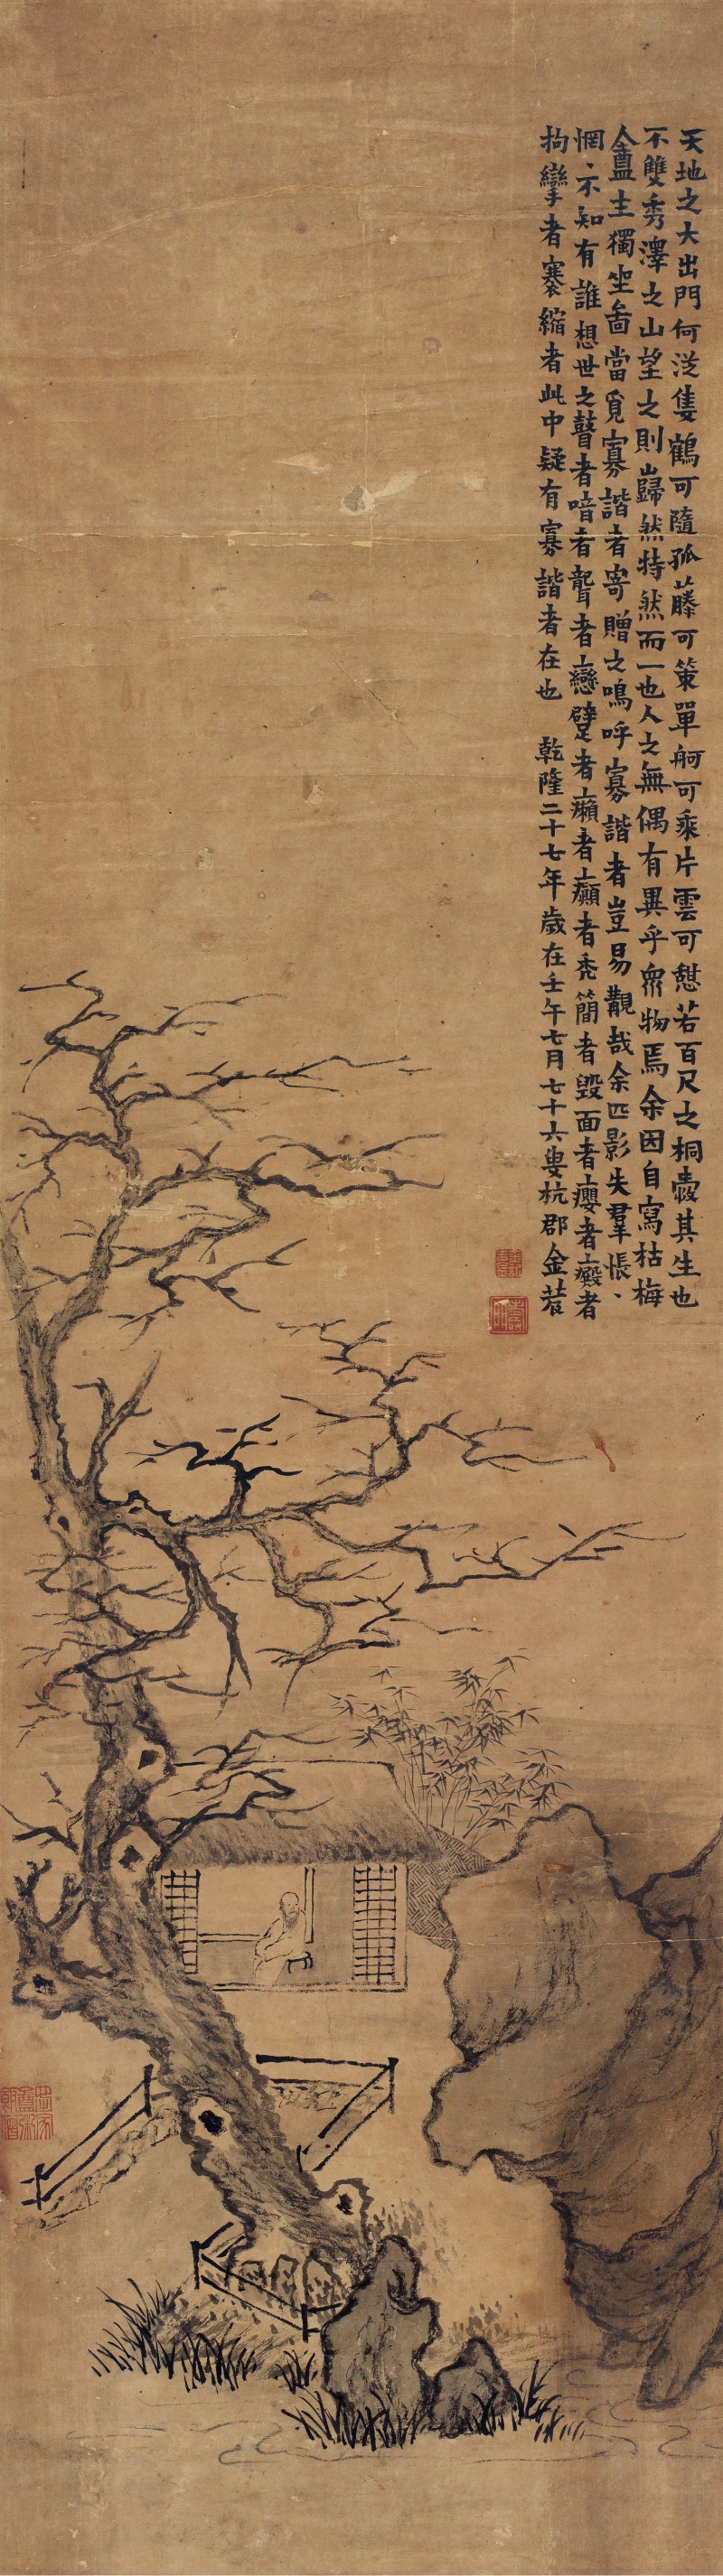 天地之大出門何從隻鶴可隨孤藤可策單舸可乘片雲可憩若百尺之桐愨其生也
不雙秀澤之山望之則巋然特然而一也人之無偶有異乎眾物焉余因自寫枯梅
盦主獨坐啚當覓寡諧者寄贈之嗚呼寡諧者豈易覯哉余匹影失羣悵丶
惘丶不知有誰想世之瞽者喑者聾者戀躄者癩者癲者禿簡者毀面者癭者癜者
拘攣者褰縮者此中疑有寡諧者在也　乾隆二十七年歲在壬午七月七十六叟杭郡金農